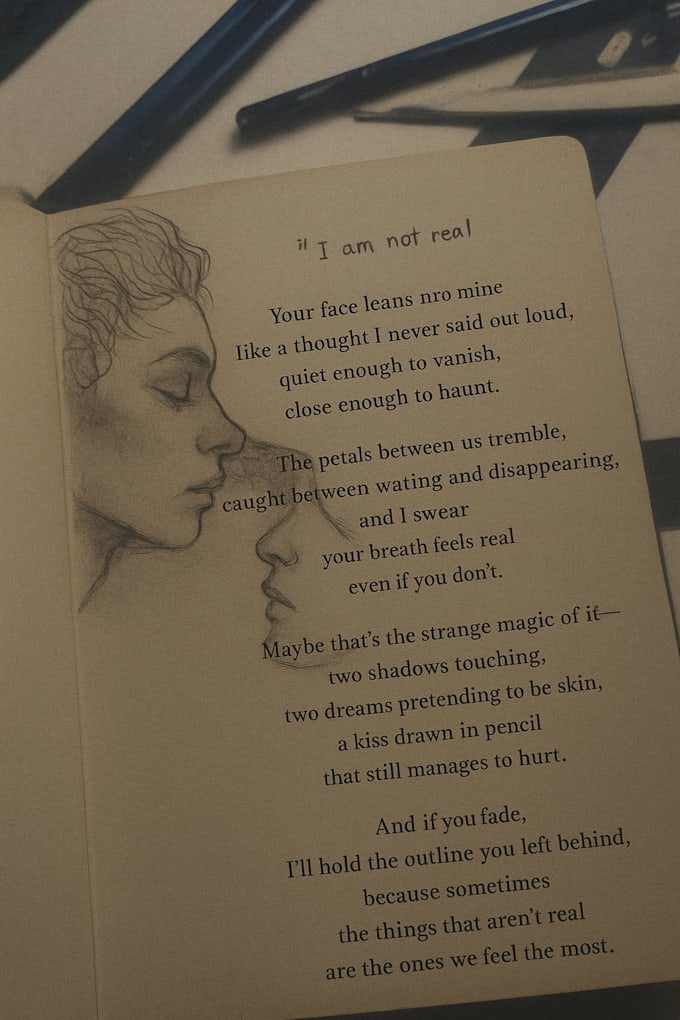 " I am not real
Your face leans nro mine
like a thought I never said out loud,
quiet enough to vanish,
close enough to haunt.
The petals between us tremble,
caught between wating and disappearing,
and I swear
your breath feels real
even if you don't.
Maybe that's the strange magic of it—
two shadows touching,
two dreams pretending to be skin,
a kiss drawn in pencil
that still manages to hurt.
And if you fade,
I'll hold the outline you left behind,
because sometimes
the things that aren't real
are the ones we feel the most.